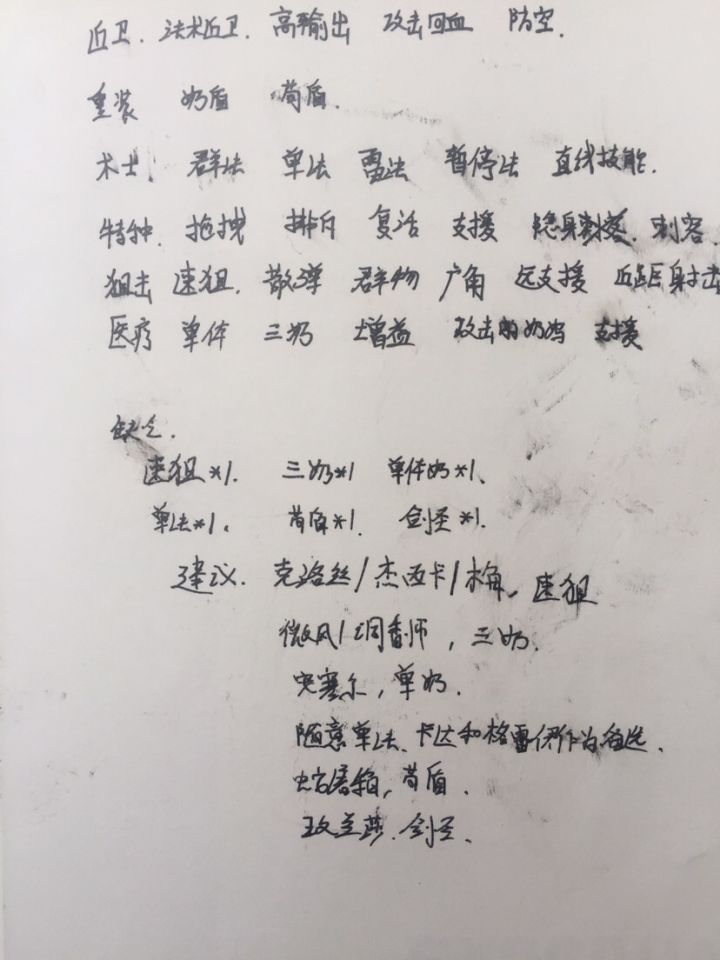 近卫. 法术近卫. 高输出 攻击回血 防空.
重装 奶盾 苟盾.
术士. 群法 单法 雷法 暂停法 直线技能.
特种. 拖拽 排斥 复活 支援 隐身 刺客
狙击 速狙. 散弹 群物 广角 远支援 近距射击
医疗 单体 三奶 增益 攻击的奶妈 支援
缺乏.
速狙*1. 三奶*1 单体奶*1、
单法*1、 苟盾*1. 剑圣*1.
建议. 克洛丝/杰西卡/梅, 速狙
微风/调香师, 三奶.
安塞尔, 单奶.
随意单法、卡达和格雷伊作为备选.
蛇屠箱, 苟盾.
玫兰莎. 剑圣、